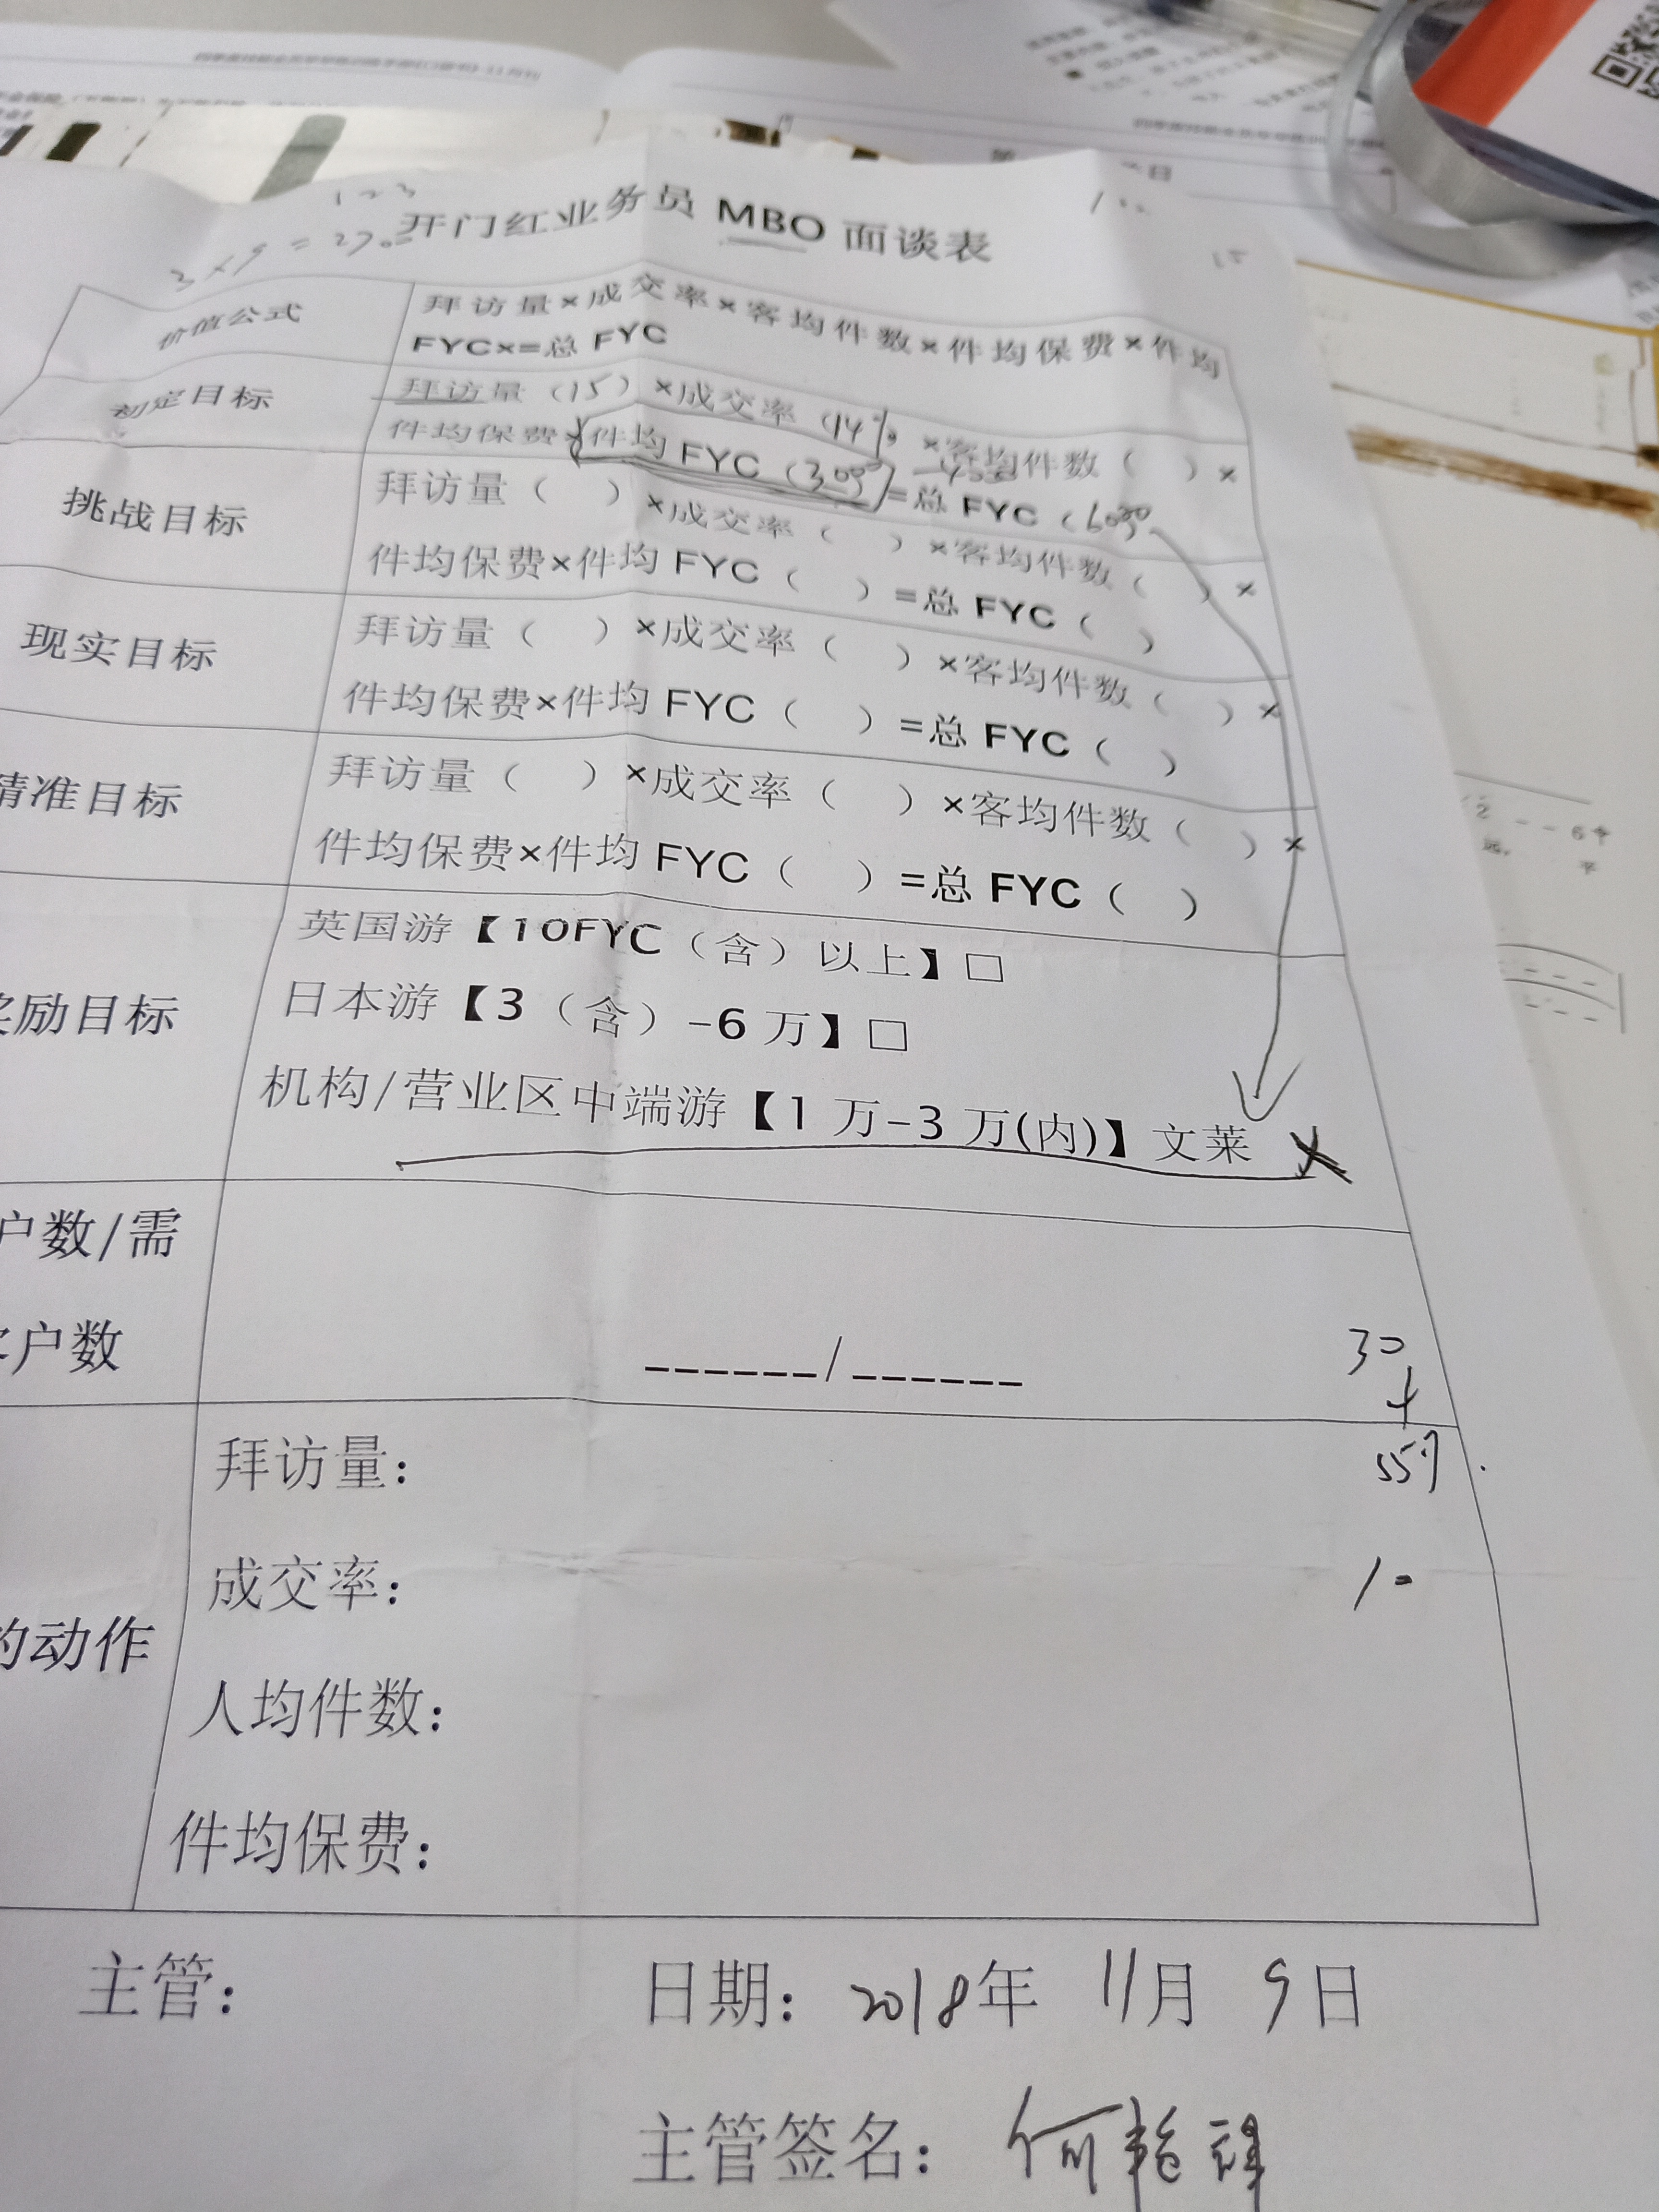 开门红业务员 MBO 面谈表
价值公式
拜访量×成交率×客均件数×件均保费×件均
FYC×=总 FYC
初定目标
拜访量（15）×成交率（14%）×客均件数（ ）×
件均保费×件均 FYC（3000）=总 FYC（6000
挑战目标
拜访量（ ）×成交率（ ）×客均件数（ ）×
件均保费×件均 FYC（ ）=总 FYC（ ）
现实目标
拜访量（ ）×成交率（ ）×客均件数（ ）×
件均保费×件均 FYC（ ）=总 FYC（ ）
精准目标
拜访量（ ）×成交率（ ）×客均件数（ ）×
件均保费×件均 FYC（ ）=总 FYC（ ）
奖励目标
英国游【10FYC（含）以上】□
日本游【3（含）-6 万】□
机构/营业区中端游【1 万-3 万(内)】文莱
户数/需
客户数
______/______
30
的动作
拜访量：
成交率：
10
人均件数：
件均保费：
主管：
日期：2018年 11月 9日
主管签名：